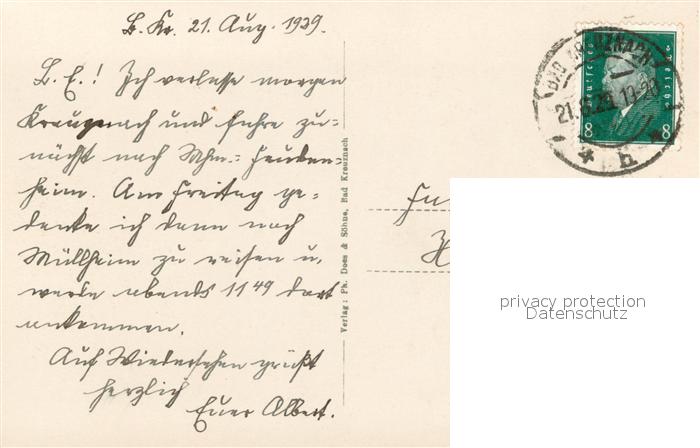 B. Kr. 21. Aug. 1929.
L. E.! Ich verlasse morgen
Kreuznach und fahre zu-
nächst nach Mhm.-Feuden-
heim. Am Freitag ge-
denke ich dann nach
Müllheim zu reisen u.
werde abends 11 49 dort
ankommen.
Auf Wiedersehen grüßt
herzlich
Euer Albert.
Verlag: Ph. Does & Söhne, Bad Kreuznach
BAD KREUZNACH
21.8.29.19-20
* b *
Deutsches Reich
8 8
privacy protection
Datenschutz